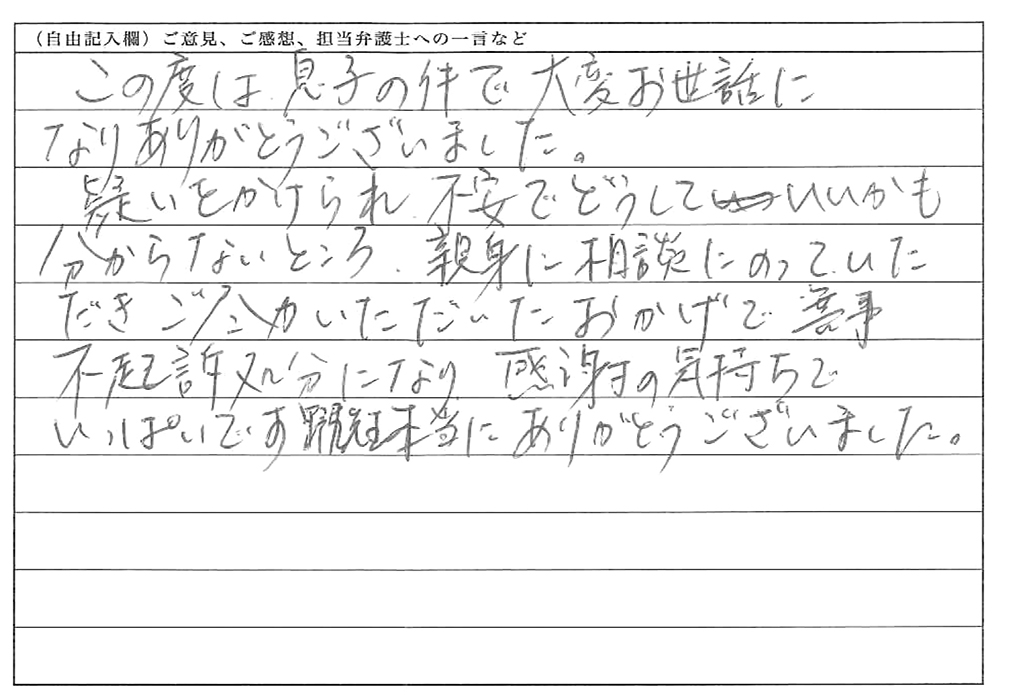 （自由記入欄）ご意見、ご感想、担当弁護士への一言など
この度は、息子の件で大変お世話に
なりありがとうございました。
疑いをかけられ、不安でどうしていいかも
分からないところ、親身に相談にのっていた
だきご尽力いただいたおかげで無事
不起訴処分になり、感謝の気持ちで
いっぱいです 本当にありがとうございました。